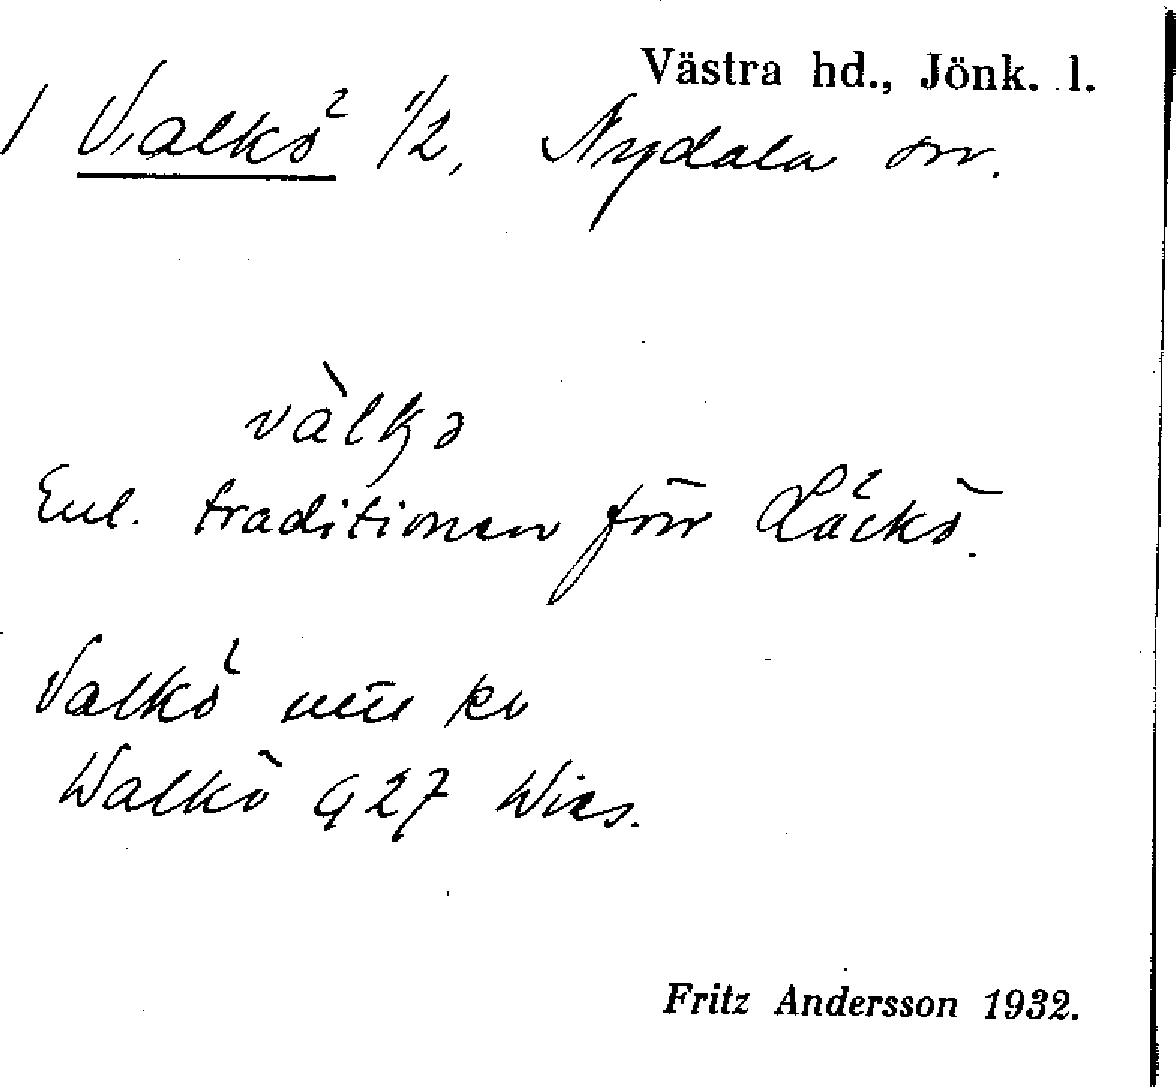 Västra hd., Jönk. l.
/ Valkö 1/2, Nydala sn.
vàlkə
Enl. traditionen förr Läckö.
Valkö
Walkö G27 Wies.
Fritz Andersson 1932.